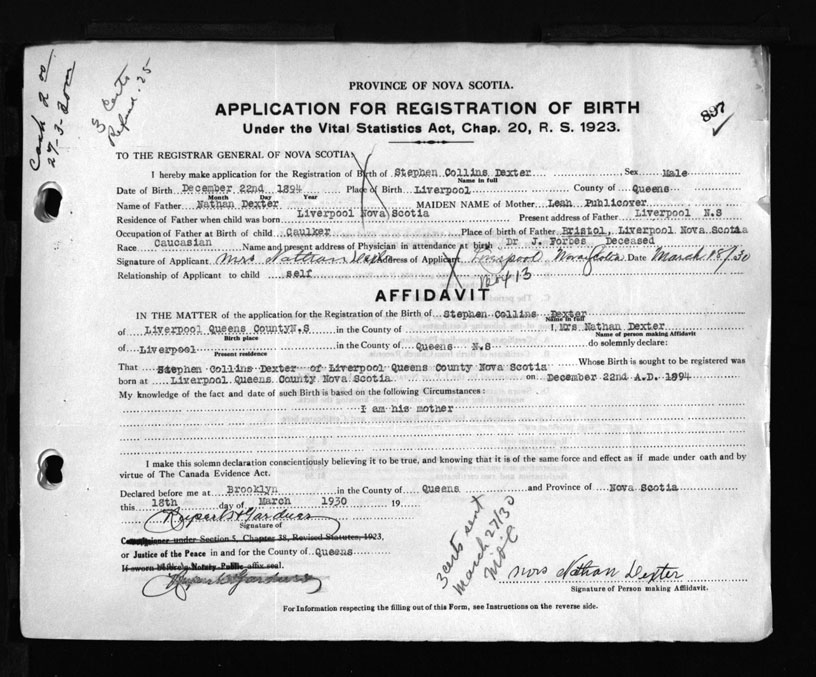 Cash 2 00
27-3-30
3 Certs
Refund .25
PROVINCE OF NOVA SCOTIA.
897
APPLICATION FOR REGISTRATION OF BIRTH
Under the Vital Statistics Act, Chap. 20, R. S. 1923.
TO THE REGISTRAR GENERAL OF NOVA SCOTIA
I hereby make application for the Registration of Birth of Stephen Collins Dexter Sex Male
Name in full
Date of Birth December 22nd 1894 Place of Birth Liverpool County of Queens
Month Day Year
Name of Father Nathan Dexter MAIDEN NAME of Mother Leah Publicover
Residence of Father when child was born Liverpool Nova Scotia Present address of Father Liverpool N.S
Occupation of Father at Birth of child Caulker Place of birth of Father Bristol, Liverpool Nova Scotia
Race Caucasian Name and present address of Physician in attendance at birth Dr J. Forbes Deceased
Signature of Applicant Mrs Nathan Dexter Address of Applicant Liverpool Nova Scotia Date March 18/30
Relationship of Applicant to child self
120413
AFFIDAVIT
IN THE MATTER of the application for the Registration of the Birth of Stephen Collins Dexter
Name in full
of Liverpool Queens County N.S in the County of I, Mrs Nathan Dexter
Birth place Name of person making Affidavit
of Liverpool in the County of Queens N.S do solemnly declare:
Present residence
That Stephen Collins Dexter of Liverpool Queens County Nova Scotia Whose Birth is sought to be registered was
born at Liverpool Queens County Nova Scotia on December 22nd A.D. 1894
My knowledge of the fact and date of such Birth is based on the following Circumstances:
I am his mother
I make this solemn declaration conscientiously believing it to be true, and knowing that it is of the same force and effect as if made under oath and by
virtue of The Canada Evidence Act.
Declared before me at Brooklyn in the County of Queens and Province of Nova Scotia
this 18th day of March 1930 19
Rupert H Gardner
Signature of
Commissioner under Section 5, Chapter 38, Revised Statutes, 1923,
or Justice of the Peace in and for the County of Queens
If sworn before Notary Public affix seal.
3 certs sent
March 27/30
Mrs Nathan Dexter
Signature of Person making Affidavit.
For Information respecting the filling out of this Form, see Instructions on the reverse side.